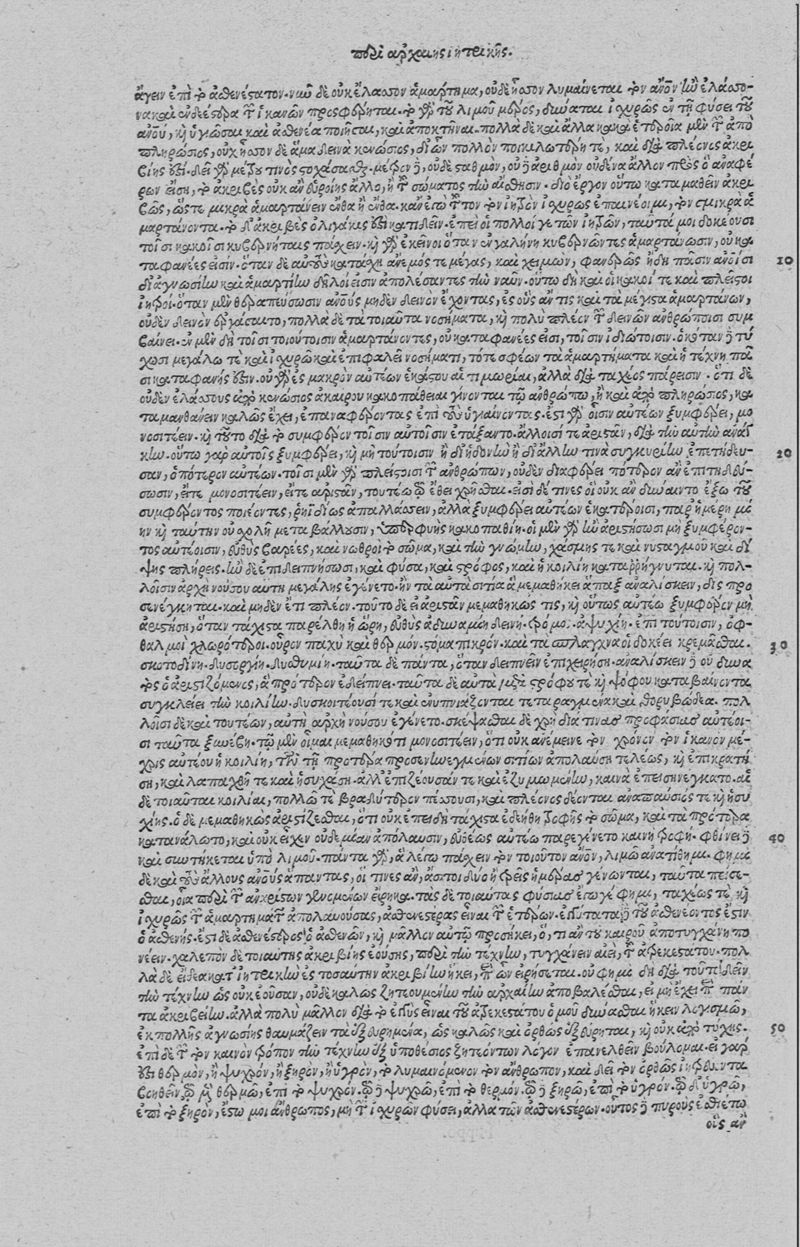 περὶ ἀρχαίης ἰητρικῆς.
ἄγειν ἐπὶ τὸ ἀσθενέστατον. νῦν δὲ οὐκ ἔλασσον ἁμάρτημα, οὐδὲ ἧσσον λυμαίνεται τὸν ἄνον ἢν ἐλάσσο-
να καὶ ἐνδεέστερα τῶν ἱκανῶν προσφέρηται. τὸ γὰρ τοῦ λιμοῦ μέρος, δύναται ἰσχυρῶς ἐν τῇ φύσει τοῦ
ἀνου, κὴ γυιῶσαι καὶ ἀσθενέα ποιῆσαι, καὶ ἀποκτῆναι. πολλὰ δὲ καὶ ἄλλα κακὰ ἑτεροῖα μὲν τῶν ἀπὸ
πληρώσιος, οὐχ ἧσσον δὲ ἅμα δεινὰ κενώσιος, δι᾽ ὧν πολλὸν ποικιλωτέρη τε, καὶ διὰ πλέονος ἀκρι-
βίης ἐστί. δεῖ γὰρ μέτρου τινὸς στοχάσασθαι. μέτρον δὲ, οὐδὲ σταθμὸν, οὐδὲ ἀριθμὸν οὐδένα ἄλλον πρὸς ὃ ἀναφέ
ρων εἴση, τὸ ἀκριβὲς οὐκ ἂν εὑροίης ἄλλο, ἢ τοῦ σώματος τὴν αἴσθησιν. διὸ ἔργον οὕτω καταμαθεῖν ἀκρι
βῶς, ὥστε μικρὰ ἁμαρτάνειν ἔνθα ἢ ἔνθα. κἂν ἐγὼ τοῦτον τὸν ἰητρὸν ἰσχυρῶς ἐπαινέοιμι, τὸν σμικρὰ ἁ
μαρτάνοντα. τὸ δ᾽ ἀκριβὲς ὀλιγάκις ἐστὶ κατιδεῖν. ἐπεὶ οἱ πολλοί γε τῶν ἰητρῶν, ταὐτά μοι δοκέουσι
τοῖσι κακοῖσι κυβερνήταις πάσχειν. κὴ γὰρ ἐκεῖνοι ὅταν ἐν γαλήνῃ κυβερνῶντες ἁμαρτάνωσιν, οὐ κα
ταφανέες εἰσίν. ὅταν δὲ αὐτοὺς κατάσχῃ ἄνεμός τε μέγας, καὶ χειμὼν, φανερῶς ἤδη πᾶσιν ἀνοισι 10
δι᾽ ἀγνωσίην καὶ ἁμαρτίην δῆλοί εἰσιν ἀπολέσαντες τὴν ναῦν. οὕτω δὴ καὶ οἱ κακοί τε καὶ πλεῖστοι
ἰητροί. ὅταν μὲν θεραπεύσωσιν ἀνους μηδὲν δεινὸν ἔχοντας, ἐς οὓς ἄν τις καὶ τὰ μέγιστα ἁμαρτάνων,
οὐδὲν δεινὸν ἐργάσαιτο, πολλὰ δὲ τὰ τοιαῦτα νοσήματα, κὴ πολὺ πλέον τῶν δεινῶν ἀνθρώποισι συμ
βαίνει. ἐν μὲν δὴ τοῖσι τοιούτοισιν ἁμαρτάνοντες, οὐ καταφανέες εἰσὶ, τοῖσιν ἰδιώτοισιν. ὁκόταν δὲ τύ
χωσι μεγάλῳ τε καὶ ἰσχυρῷ καὶ ἐπισφαλεῖ νοσήματι, τότε σφέων τὰ ἁμαρτήματα καὶ ἡ τέχνη πᾶ
σι καταφανής ἐστιν. οὐ γὰρ ἐς μακρὸν αὐτέων ἑκάστου αἱ τιμωρίαι, ἀλλὰ διὰ ταχέος πάρεισιν. ὅτι δὲ
οὐδὲν ἐλάσσους ἀπὸ κενώσιος ἀκαίρου κακοπάθειαι γίνονται τῷ ἀνθρώπῳ, ἢ καὶ ἀπὸ πληρώσιος, κα
ταμανθάνειν καλῶς ἔχει, ἐπαναφέροντας ἐπὶ τοὺς ὑγιαίνοντας. ἔστι γὰρ οἷσιν αὐτέων ξυμφέρει, μο
νοσιτέειν. κὴ τοῦτο διὰ τὸ συμφέρον τοῖσιν αὐτοῖσιν ἐτάξαντο. ἄλλοισί τε ἀριστᾶν, διὰ τὴν αὐτὴν ἀνάγ
κην. οὕτω γὰρ αὐτοῖς ξυμφέρει, κὴ μὴ τούτοισιν ἢ δι᾽ ἡδονὴν ἢ δι᾽ ἄλλην τινὰ συγκυρίην ἐπετήδευ- 20
σαν, ὁπότερον αὐτέων. τοῖσι μὲν γὰρ πλείστοισι τῶν ἀνθρώπων, οὐδὲν διαφέρει πότερον ἂν ἐπιτηδεύ-
σωσιν, εἴτε μονοσιτέειν, εἴτε ἀριστᾶν, τουτέῳ τῷ ἔθει χρῆσθαι. εἰσὶ δέ τινες οἳ οὐκ ἂν δύναιντο ἔξω τοῦ
συμφέροντος ποιέοντες, ῥηϊδίως ἀπαλλάσσειν, ἀλλὰ ξυμφέρει αὐτέων ἑκατέροισι, παρ᾽ ἡμέρην μί
ην κὴ ταύτην οὐχ ὅλην μεταβάλλουσιν, ὑπερφυὴς κακοπαθίη. οἱ μὲν γὰρ ἢν ἀριστήσωσι μὴ ξυμφέρον-
τος αὐτέοισιν, εὐθὺς βαρέες, καὶ νωθροὶ τὸ σῶμα, καὶ τὴν γνώμην, χάσμης τε καὶ νυσταγμοῦ καὶ δί
ψης πλήρεις. ἢν δὲ ἐπιδειπνήσωσι, καὶ φῦσα, καὶ στρόφος, καὶ ἡ κοιλίη καταρρήγνυται. κὴ πολ-
λοῖσιν ἀρχὴ νούσου αὕτη μεγάλης ἐγένετο. ἢν τὰ αὐτὰ σιτία ἃ μεμαθήκει ἅπαξ ἀναλίσκειν, δὶς προ
σενέγκηται. καὶ μηδὲν ἔτι πλέον. τοῦτο δὲ εἰ ἀριστᾶν μεμαθηκώς τις, κὴ οὕτως αὐτέῳ ξυμφέρον μὴ
ἀριστήσῃ, ὅταν τάχιστα παρέλθῃ ἡ ὥρη, εὐθὺς ἀδυναμίη δεινή. τρόμος. ἀψυχίη. ἐπὶ τούτοισιν, ὀφ-
θαλμοὶ χλωρότεροι. οὖρον παχὺ καὶ θερμόν. στόμα πικρόν. καὶ τὰ σπλάγχνα οἱ δοκέει κρέμασθαι. 30
σκοτοδίνη. δυσοργίη. δυσθυμίη. ταῦτα δὲ πάντα, ὅταν δειπνεῖν ἐπιχειρήσῃ. ἀναλίσκειν δὲ οὐ δύνα
ται ὅσα ἀριστιζόμενος, ἃ πρότερον ἐδείπνει. ταῦτα δὲ αὐτὰ μετὰ στρόφου τε κὴ ψόφου καταβαίνοντα
συγκλείει τὴν κοιλίην. δυσκοιτέουσί τε καὶ ἐνυπνιάζονται τεταραγμένα καὶ θορυβώδεα. πολ
λοῖσι δὲ καὶ τουτέων, αὕτη ἀρχὴ νούσου ἐγένετο. σκέψασθαι δὲ χρὴ διὰ τίνας προφάσιας αὐτέοι-
σι ταῦτα ξυνέβη. τῷ μὲν οἶμαι μεμαθηκότι μονοσιτέειν, ὅτι οὐκ ἀνέμεινε τὸν χρόνον τὸν ἱκανὸν μέ-
χρις αὐτέου ἡ κοιλίη, τῶν τῇ προτέρᾳ προσενηνεγμένων σιτίων ἀπολαύσῃ τελέως, κὴ ἐπικρατή
σῃ, καὶ λαπαχθῇ τε καὶ ἡσυχάσῃ. ἀλλ᾽ ἐπὶ ζέουσάν τε καὶ ἐζυμωμένην, καινὰ ἐπεισηνέγκατο. αἱ
δὲ τοιαῦται κοιλίαι, πολλῷ τε βραδύτερον πέσσουσι, καὶ πλέονος δέονται ἀναπαύσιός τε κὴ ἡσυ
χίης. ὁ δὲ μεμαθηκὼς ἀριστίζεσθαι, ὅτι οὐκ ἐπειδὴ τάχιστα ἐδεήθη τροφῆς τὸ σῶμα, καὶ τὰ πρότερα
κατανάλωτο, καὶ οὐκ εἶχεν οὐδεμίαν ἀπόλαυσιν, εὐθέως αὐτέῳ παρεγίνετο καινὴ τροφή. φθίνει δὲ 40
καὶ συντήκεται ὑπὸ λιμοῦ. πάντα γὰρ, ἃ λέγω πάσχειν τὸν τοιοῦτον ἄνον, λιμῷ ἀνατίθημι. φημὶ
δὲ καὶ τοὺς ἄλλους ἀνους ἅπαντας, οἵ τινες ἂν, ἄσιτοι δύο ἢ τρεῖς ἡμέρας γένωνται, ταῦτα πείσε-
σθαι, οἷα περὶ τῶν ἀναρίστων γενομένων εἴρηκα. τὰς δὲ τοιαύτας φύσιας ἔγωγέ φημι, ταχέως τε κὴ
ἰσχυρῶς τῶν ἁμαρτημάτων ἀπολαυούσας, ἀσθενεστέρας εἶναι τῶν ἑτέρων. ἐγγύτατα δὲ τοῦ ἀσθενέοντός ἐστιν
ὁ ἀσθενής. ἔτι δὲ ἀσθενέστερος ὁ ἀσθενῶν, κὴ μᾶλλον αὐτῷ προσήκει, ὅ, τι ἂν τοῦ καιροῦ ἀποτυγχάνῃ πο
νέειν. χαλεπὸν δὲ τοιαύτης ἀκριβίης ἐούσης, περὶ τὴν τέχνην, τυγχάνειν αἰεὶ, τοῦ ἀτρεκεστάτου. πολ
λὰ δὲ εἴδεα κατ᾽ ἰητρικὴν ἐς τοσαύτην ἀκριβίην ἥκει, περὶ ὧν εἰρήσεται. οὐ φημὶ δὴ διὰ τοῦτο δεῖν
τὴν τέχνην ὡς οὐκ ἐοῦσαν, οὐδὲ καλῶς ζητευμένην τὴν ἀρχαίην ἀποβαλέσθαι, εἰ μὴ ἔχει περὶ πάν
τα ἀκριβείην. ἀλλὰ πολὺ μᾶλλον διὰ τὸ ἐγγὺς εἶναι τοῦ ἀτρεκεστάτου ὁμοῦ δύνασθαι ἥκειν λογισμῷ,
ἐκ πολλῆς ἀγνωσίης θαυμάζειν τὰ ἐξευρημένα, ὡς καλῶς καὶ ὀρθῶς ἐξεύρηται, κὴ οὐκ ἀπὸ τύχης. 50
ἐπὶ δὲ τῶν τὸν καινὸν τρόπον τὴν τέχνην ἐξ ὑποθέσιος ζητεόντων λόγον ἐπανελθεῖν βούλομαι. εἰ γάρ
ἐστι θερμὸν, ἢ ψυχρὸν, ἢ ξηρὸν, ἢ ὑγρὸν, τὸ λυμαινόμενον τὸν ἄνθρωπον, καὶ δεῖ τὸν ὀρθῶς ἰητρεύοντα
βοηθεῖν, τῷ μὲν θερμῷ, ἐπὶ τὸ ψυχρόν. τῷ δὲ ψυχρῷ, ἐπὶ τὸ θερμόν. τῷ δὲ ξηρῷ, ἐπὶ τὸ ὑγρόν. τῷ δ᾽ ὑγρῷ,
ἐπὶ τὸ ξηρόν, ἔστω μοι ἄνθρωπος, μὴ τῶν ἰσχυρῶν φύσει, ἀλλὰ τῶν ἀσθενεστέρων. οὗτος δὲ πυροὺς ἐσθιέτω
οἷς ἂν